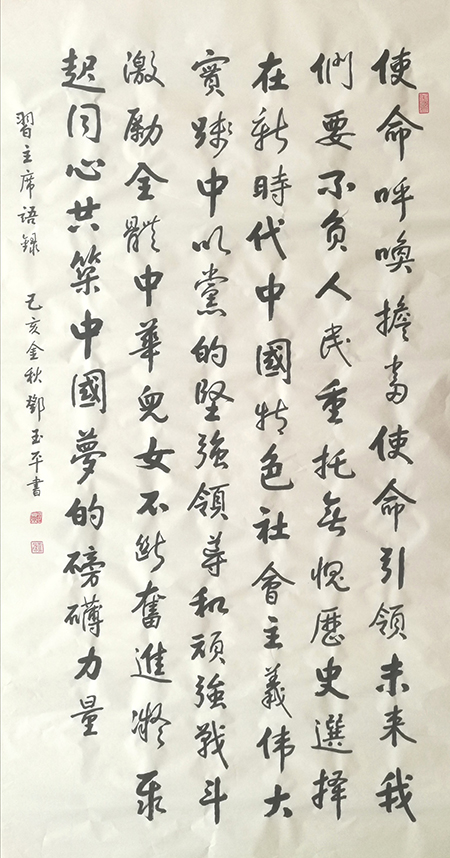 使命呼喚擔當使命引領未来我
們要不负人民重托無愧歷史選择
在新時代中國特色社會主義伟大
實踐中以黨的堅強領導和頑強戰斗
激勵全體中華兒女不斷奮進凝聚
起同心共築中國夢的磅礴力量
習主席语録
己亥金秋鄧玉平書